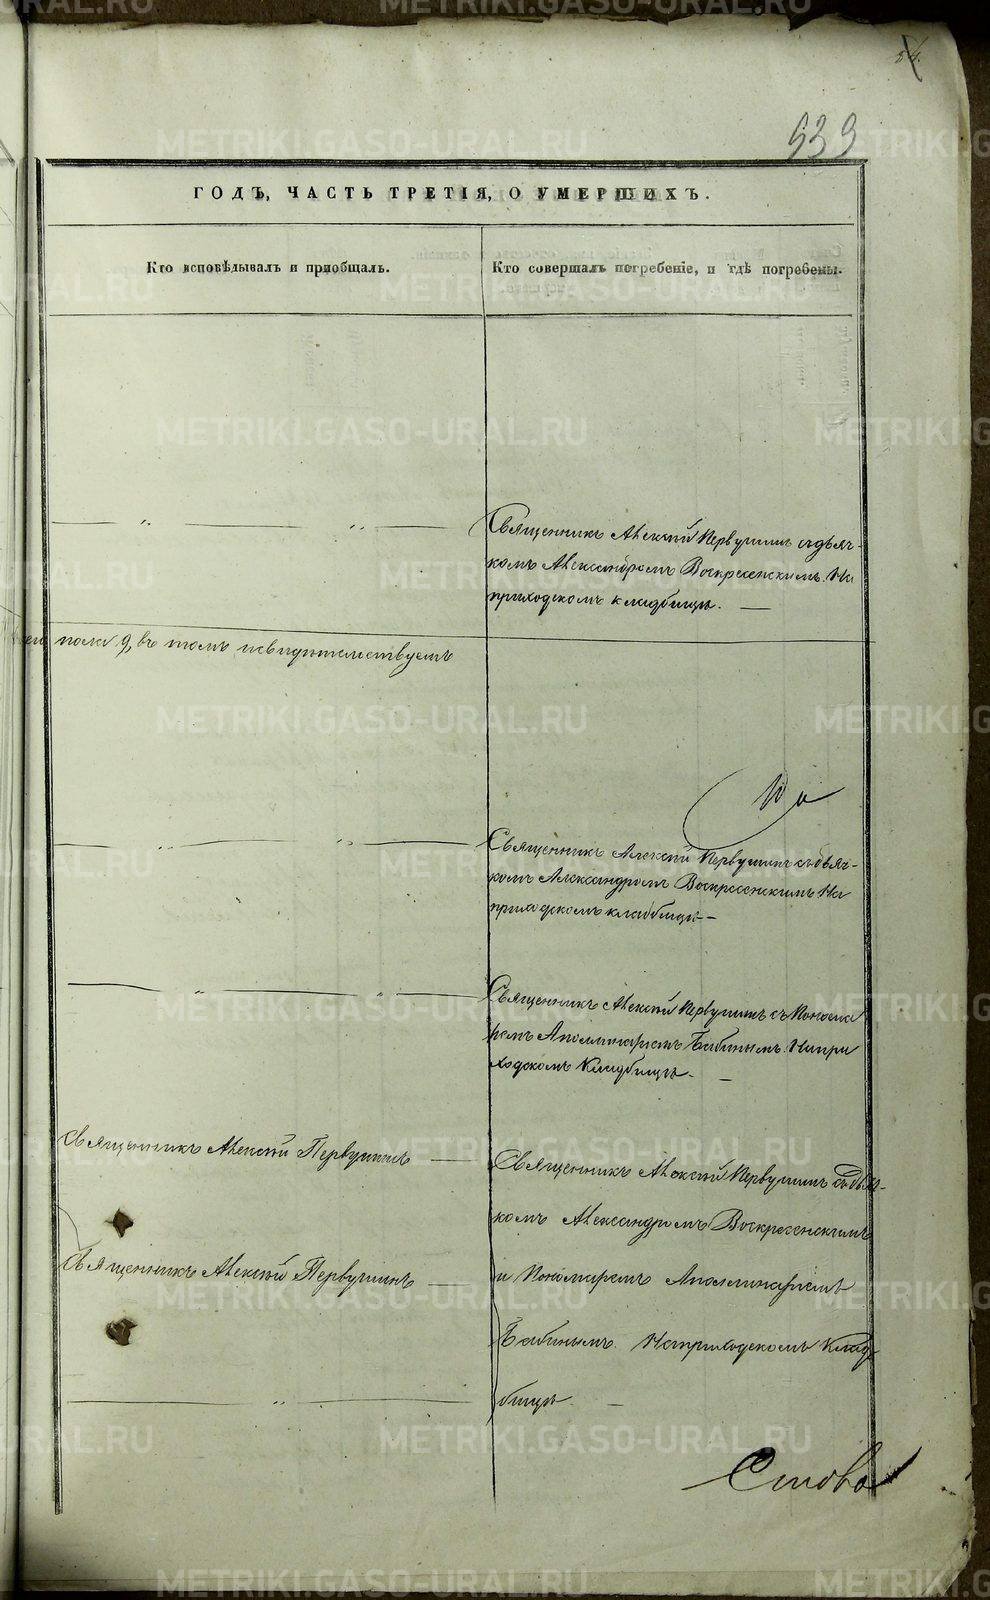 54.
539
ГОДЪ, ЧАСТЬ ТРЕТІЯ, О УМЕРШИХЪ.
Кто исповѣдывалъ и пріобщалъ.
Кто совершалъ погребеніе, и гдѣ погребены.
Священникъ Алексѣй Первушинъ съ дьяч-
комъ Александромъ Воскресенскимъ. На
приходскомъ кладбищѣ. —
пола 9, въ томъ свидѣтельствуемъ
Священникъ Алексѣй Первушинъ съ дьяч-
комъ Александромъ Воскресенскимъ На
приходскомъ кладбищѣ —
Священникъ Алексѣй Первушинъ съ Понома
ремъ Аполлинаріемъ Бабинымъ. На при
ходскомъ Кладбищѣ. —
Священникъ Алексѣй Первушинъ —
Священникъ Алексѣй Первушинъ —
Священникъ Алексѣй Первушинъ съ дьяч-
комъ Александромъ Воскресенскимъ
и Пономаремъ Аполлинаріемъ
Бабинымъ. На приходскомъ Клад-
бищѣ. —
METRIKI.GASO-URAL.RU